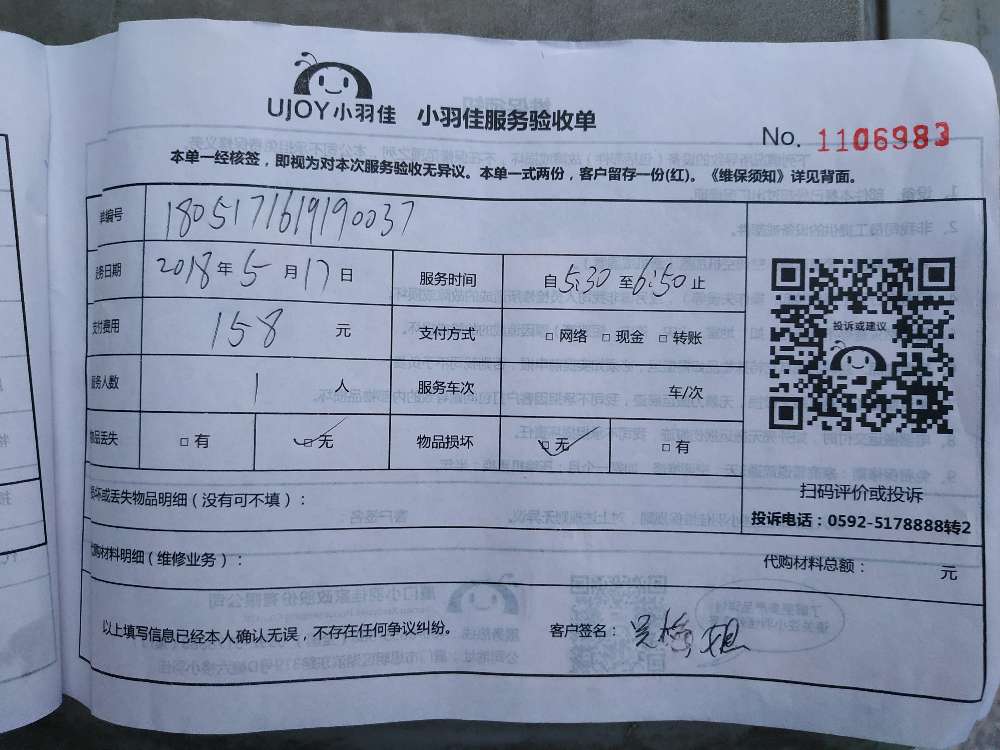 UJOY小羽佳 小羽佳服务验收单
No. 1106983
本单一经核签，即视为对本次服务验收无异议。本单一式两份，客户留存一份(红)。《维保须知》详见背面。
单编号 1805171619190037
务日期 2018年5月17日 服务时间 自5:30至6:50止
支付费用 158元 支付方式 □网络 □现金 □转账
服务人数 1人 服务车次 车/次
物品丢失 □有 □无 物品损坏 □无 □有
投诉或建议
扫码评价或投诉
投诉电话：0592-5178888转2
损坏或丢失物品明细（没有可不填）：
代购材料明细（维修业务）： 代购材料总额： 元
以上填写信息已经本人确认无误，不存在任何争议纠纷。 客户签名：